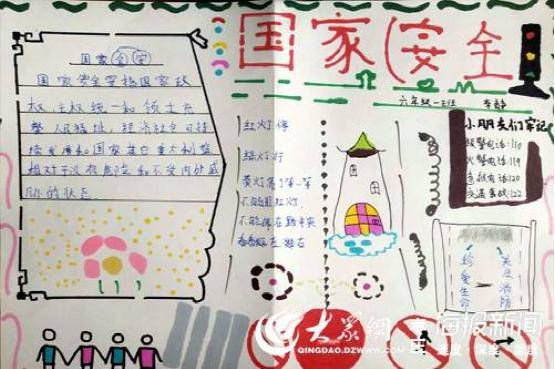 国家安全
六年级一班 李静
国家安全
国家安全是指国家政
权、主权、统一和领土完
整、人民福祉、经济社会可持
续发展和国家其他重大利益
相对于没有危险和不受内外威
胁的状态
红灯停
绿灯行
黄灯亮了等一等
不能闯红灯
不能停在路中央
小朋友们牢记
报警电话:110
火警电话:119
急救电话:120
交通事故:122
珍爱生命
关注消防
大众网
QINGDAO.DZWWW.COM
海报新闻
速度·深度·热度